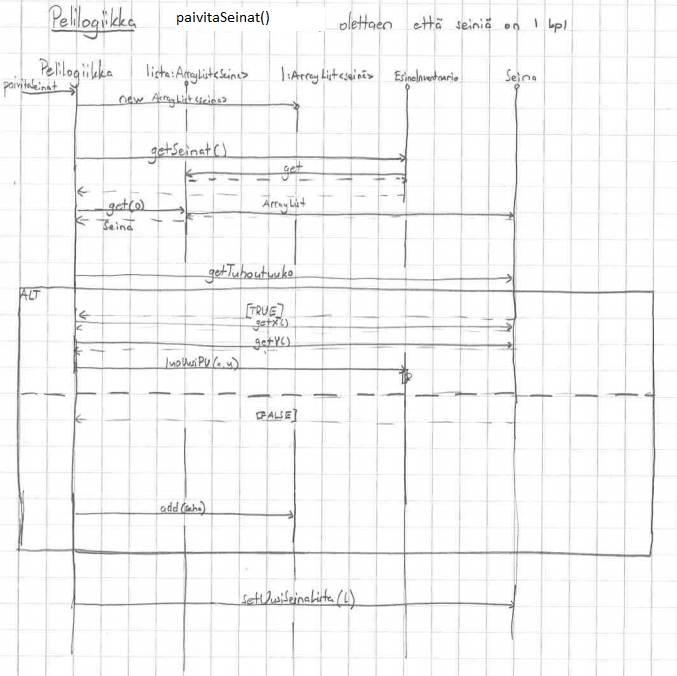 Pelilogiikka paivitaSeinat() olettaen että seiniä on 1 kpl
Pelilogiikka lista:ArrayList<Seina> l:ArrayList<seina> EsineInventaario Seina
paivitaSeinat
new ArrayList<seina>
getSeinat()
get
get(0) ArrayList
Seinä
getTuhoutuuko
ALT
[TRUE]
getX()
getY()
luoUusiPU(x,y)
[FALSE]
add(seina)
setUusiSeinaLista(l)